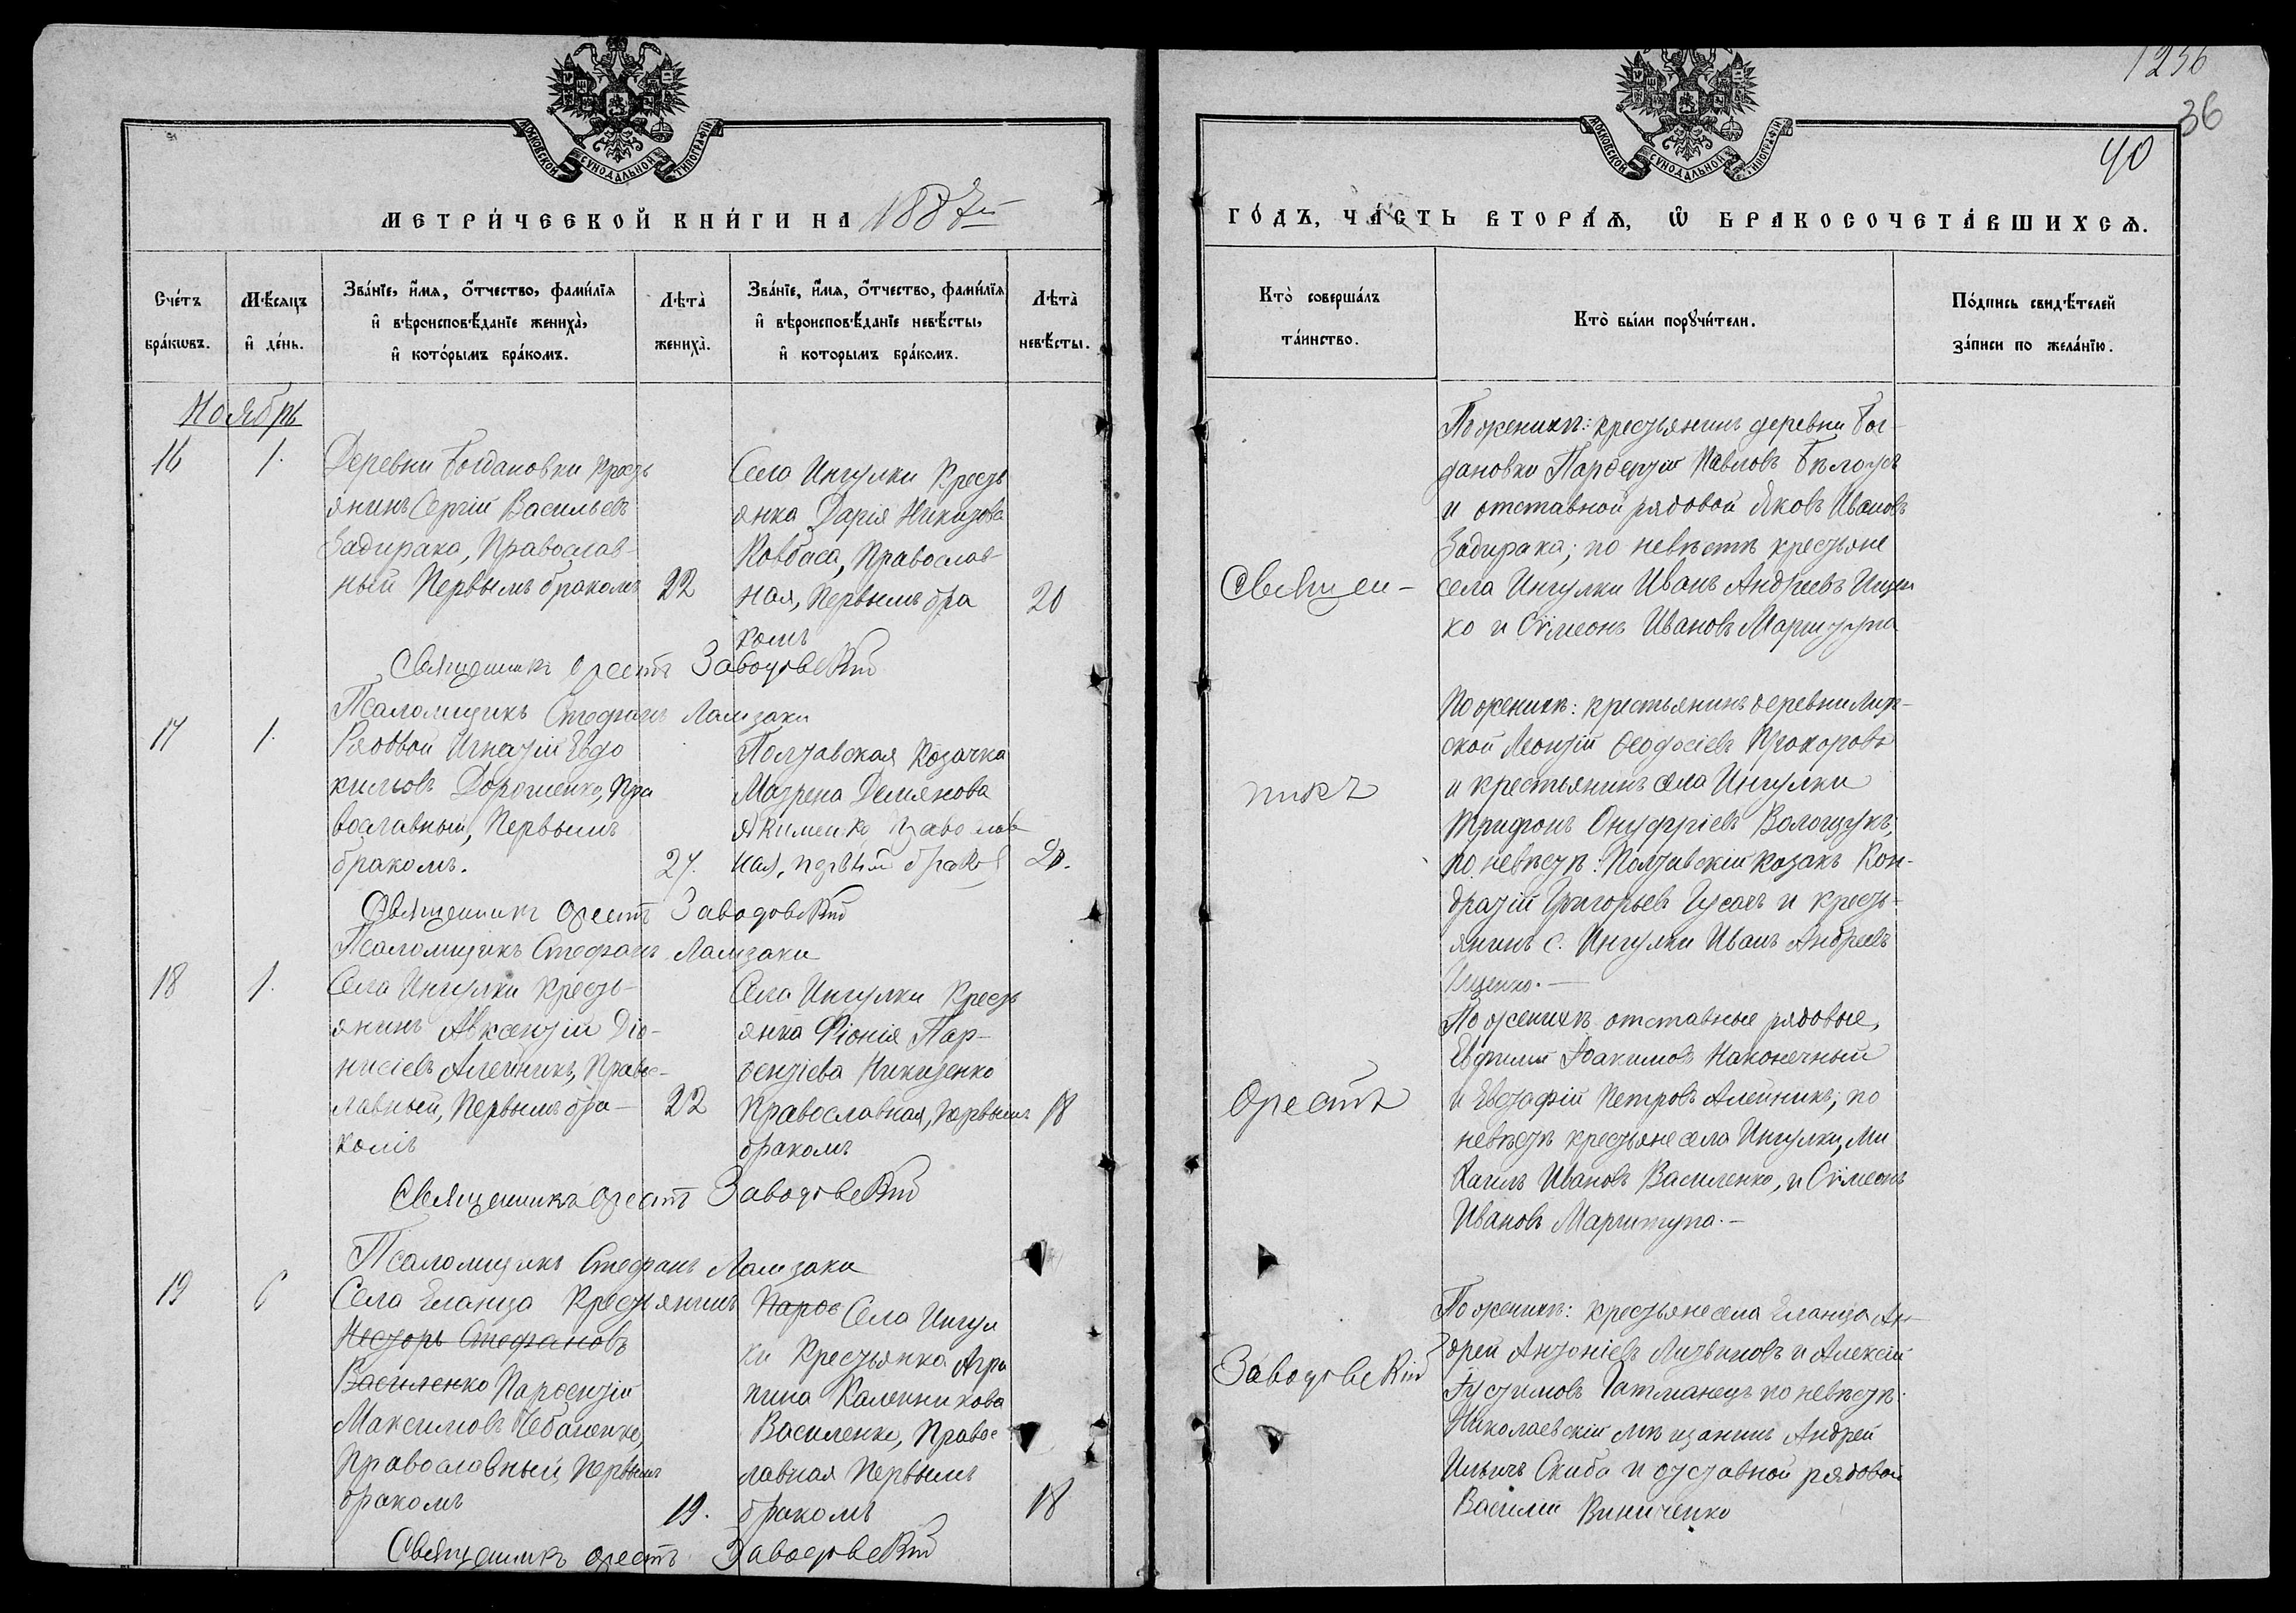 МОСКОВСКОЙ СѴНОДАЛЬНОЙ ТИПОГРАФІИ
МЕТРИ́ЧЕСКОЙ КНИ́ГИ НА 1887й
Сче́тъ бра́кѡвъ.
Мѣ́сяцъ и҆ де́нь.
Зва́нїе, и҆́мя, ѻ҆́тчество, фами́лїя
и҆ вѣроисповѣ́данїе жениха̀,
и҆ кото́рымъ бра́комъ.
Лѣта̀
жениха̀.
Зва́нїе, и҆́мя, ѻ҆́тчество, фами́лїя
и҆ вѣроисповѣ́данїе невѣ́сты,
и҆ которымъ бра́комъ.
Лѣта̀
невѣ́сты.
Ноябрь
16
1.
Деревни Богдановки крест
янинъ Сергій Васильевъ
Задирака, Православ-
ный Первымъ бракомъ
22
Села Ингулки Кресть
янка Дарія Никитова
Ковбаса, Православ
ная, Первымъ бра
комъ
20
Священникъ Орестъ Заводовскій
Псаломщикъ Стефанъ Ламзаки
17
1.
Рядовой Игнатій Евдо
кимовъ Дорошенко, Пра
вославный, Первымъ
бракомъ.
27.
Полтавская Козачка
Матрена Демянова
Якименко, православ
ная, первый бракомъ
20.
Священникъ Орестъ Заводовскій
Псаломщикъ Стефанъ Ламзаки
18
1.
Села Ингулки Кресть-
янинъ Авксентій Діо-
нисіевъ Алейникъ, Правос-
лавный, Первымъ бра-
комъ
22
Села Ингулки Кресть
янка Фіонія Пар-
ѳентіева Никитенко
Православная, Первымъ
бракомъ
18
Священникъ Орестъ Заводовскій
Псаломщикъ Стефанъ Ламзаки
19
6
Села Еланца Крестьянинъ
Несторъ Стефановъ
Василенко Парѳентій
Максимовъ Чебаненко,
Православный, Первымъ
бракомъ
19.
Парѳе Села Ингул
ки Крестьянка Агри
пина Каленикова
Василенко, Правос
лавная Первымъ
бракомъ
18
Священникъ Орестъ Заводовскій
1236
36
40
МОСКОВСКОЙ СѴНОДАЛЬНОЙ ТИПОГРАФІИ
ГО́ДЪ, ЧА́СТЬ ВТОРА́Ѧ, Ѡ҆ БРАКОСОЧЕТА́ВШИХСѦ.
Кто̀ соверша́лъ
та́инство.
Кто̀ бы́ли порꙋчи́тели.
По́дпись свидѣ́телей
за́писи по жела́нїю.
Священ-
никъ
Орестъ
Заводовскій
По женихѣ: крестьянинъ деревни Бог-
дановки Парѳентій Павловъ Бѣлоусъ
и отставной рядовой Яковъ Ивановъ
Задирака; по невѣстѣ крестьяне
села Ингулки Иванъ Андреевъ Ищен
ко и Сѵмеонъ Ивановъ Маргитупа
По женихѣ: крестьянинъ деревни
ской Леонтій Ѳеодосіевъ Прохоровъ
и крестьянинъ села Ингулки
Трифонъ Онуфріевъ Волощукъ,
по невѣстѣ: Полтавскій козакъ Кон-
дратій Григорьевъ Гусакъ и кресть-
янинъ с. Ингулки Иванъ Андреевъ
Ищенко.-
По женихѣ отставные рядовые,
Евфимій Іоакимовъ Наконечный
и Евстафій Петровъ Алейникъ; по
невѣстѣ крестьяне села Ингулки, Ми
хаилъ Ивановъ Василенко, и Сѵмеонъ
Ивановъ Маргитупа.-
По женихѣ: крестьяне села Еланца Ан-
дрей Антоніевъ Литвиновъ и Алексій
Іустимовъ Гатманецъ по невѣстѣ:
Николаевскій мѣщанинъ Андрей
Ильичъ Скиба и отставной рядовой
Василій Виниченко